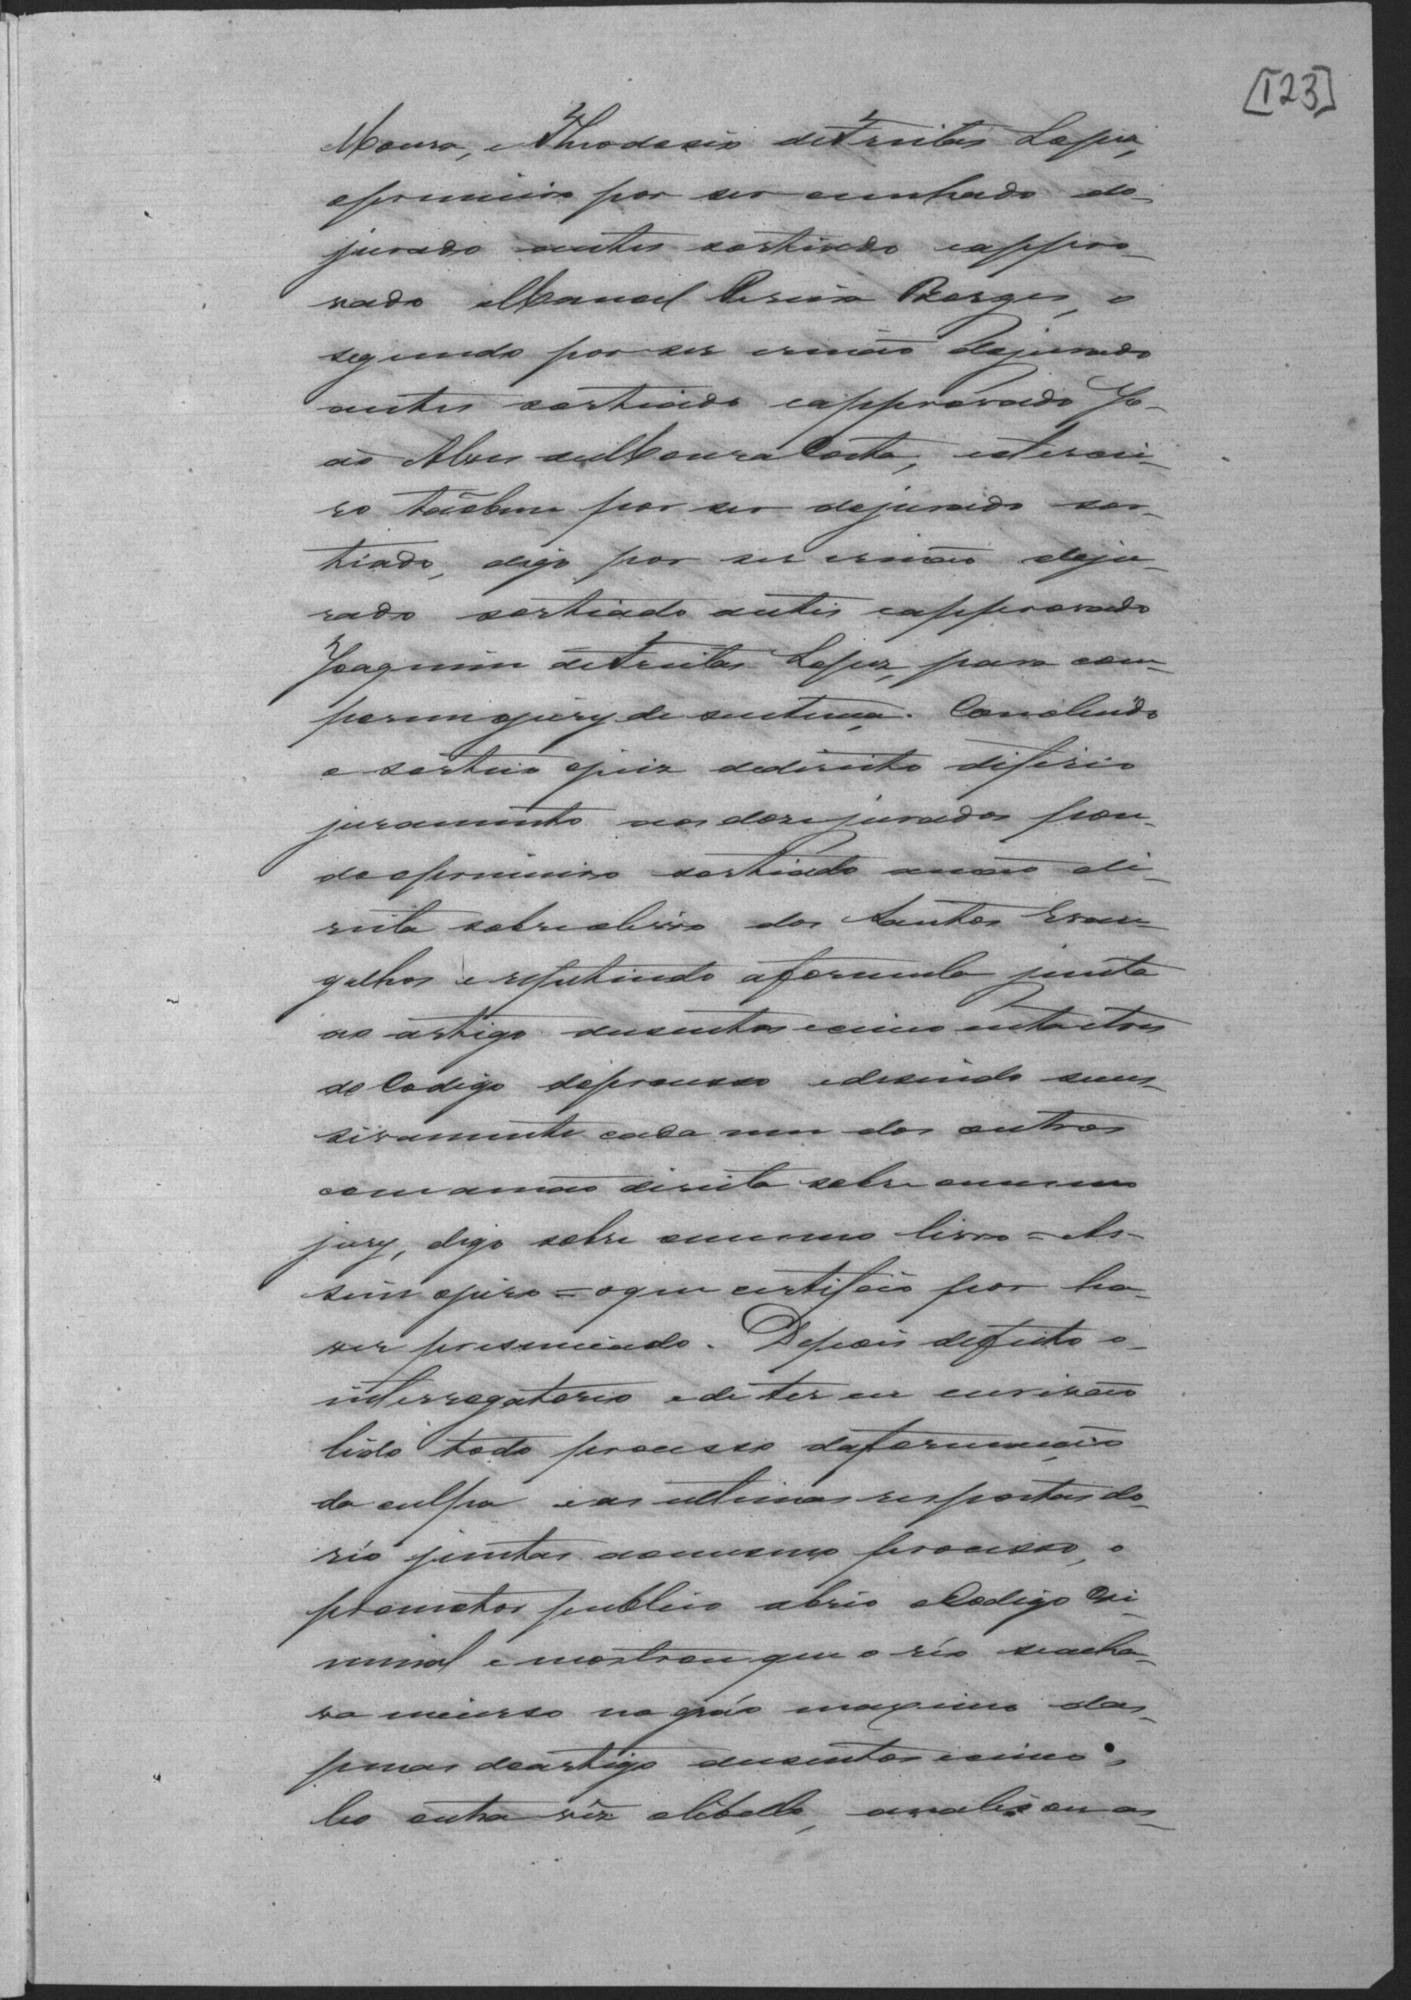 [123]
Moura, e Theodosio de Freitas Lopes,
o primeiro por ser cunhado do
jurado antes sortiado e appro-
vado Manoel Pereira Borges, o
segundo por ser irmão do jurado
antes sortiado e approvado Jo-
ão Alves de Moura Costa, e tercei-
ro tãobem por ser de jurado sor-
tiado, digo por ser irmão de ju-
rado sortiado antes e approvado
Joaquim de Freitas Lopes, para com-
porem o jury de sentença. Concluido
o sorteio o juiz de direito diferio
juramento aos doze jurados pon-
do o primeiro sortiado a mão di-
reita sobre o livro dos Santos Evan-
gelhos e repetindo a formula junta
ao artigo dusentos e cincoenta e tres
do Codigo do processo e disendo suces-
sivamente cada um dos outros
com a mão direita sobre o mesmo
jury, digo sobre o mesmo livro = As-
sim o juro = o que certifico por ha-
ver presenciado. Depois de feito o
interrogatorio e de ter eu escrivão
lido todo processo da formação
da culpa e as ultimas respostas do
réo juntas ao mesmo processo, o
promotor publico abrio o Codigo Cri-
minal e mostrou que o réo se acha-
va incurso no gráo maximo das
penas do artigo dusentos e cinco,
leo outra vêz o libello, analisou as